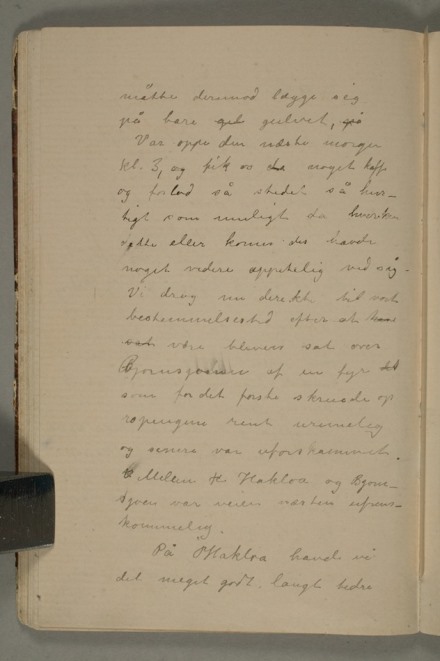 måtte derimod lægge sig
på bare gulvet,
Var oppe den næste morgen
kl. 3, og fik os noget kaff
og forlod så stedet så hur-
tigt som muligt da hverken
eller konen des havde
noget videre appetelig ved sig.
Vi drog nu direkte til vort
bestemmelsested efter at
være blevne sat over
Bjornsjoen af en fyr
som for det første skruede op
rent urimelig
og senere var uforskammet.
Mellem Hakloa og Bjorn-
sjoen var veien næsten ufrem-
kommelig.
På Hakloa havde vi
det meget godt. langt bedre